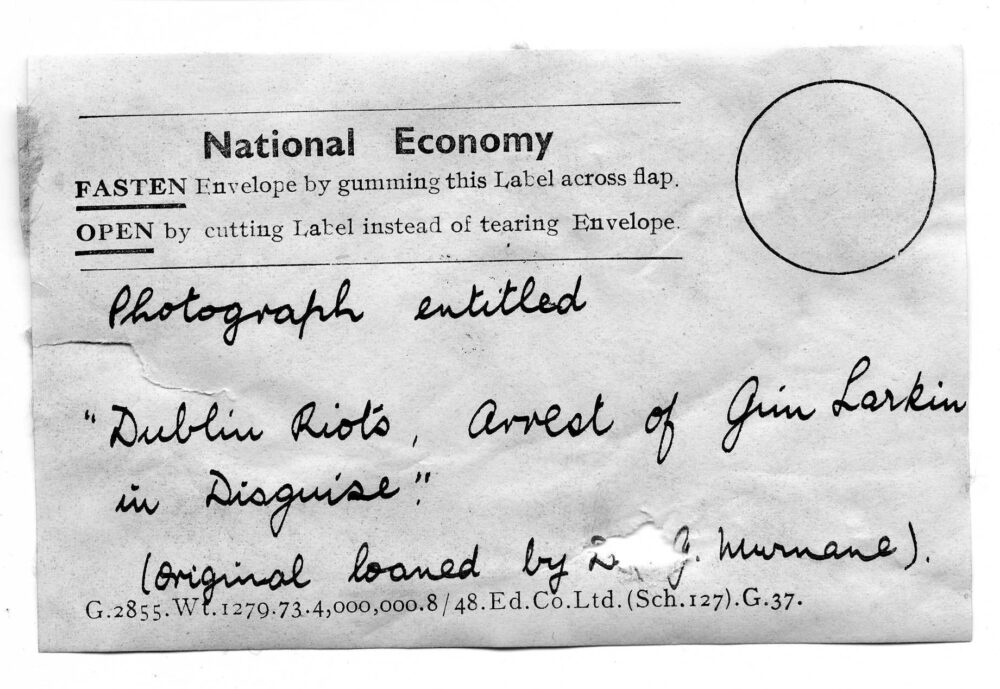 National Economy
FASTEN Envelope by gumming this Label across flap.
OPEN by cutting Label instead of tearing Envelope.
Photograph entitled
"Dublin Riots, Arrest of Jim Larkin
in Disguise".
(original loaned by J. Murnane).
G.2855.Wt.1279.73.4,000,000.8/48.Ed.Co.Ltd.(Sch.127).G.37.